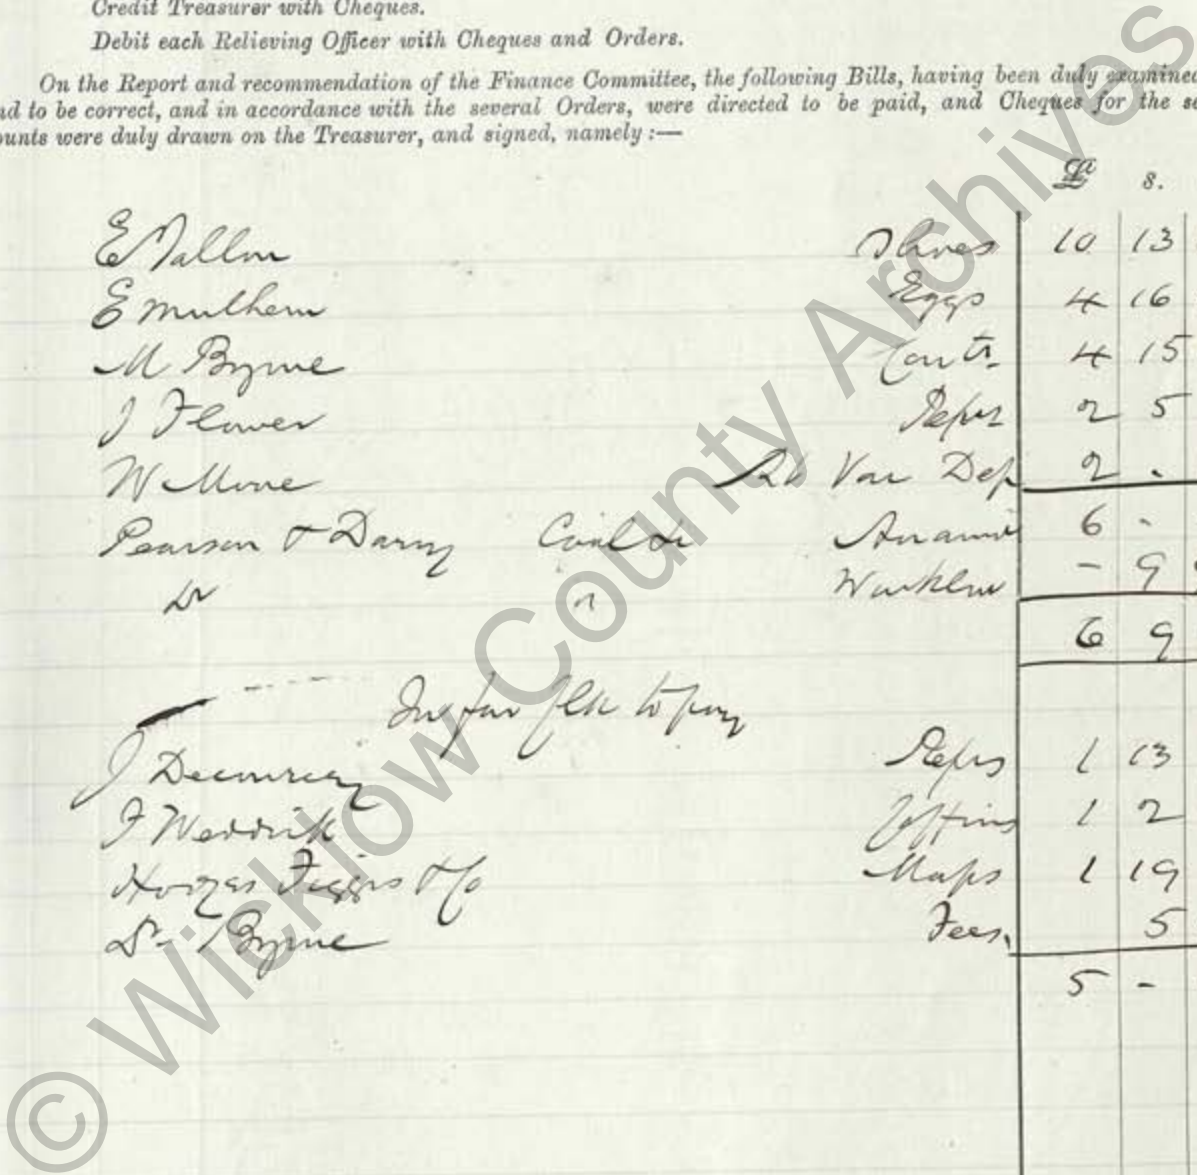 Credit Treasurer with Cheques.
Debit each Relieving Officer with Cheques and Orders.
On the Report and recommendation of the Finance Committee, the following Bills, having been duly examined
nd to be correct, and in accordance with the several Orders, were directed to be paid, and Cheques for the se
ounts were duly drawn on the Treasurer, and signed, namely :—
£ s.
E Fallon Shoes 10 13
E Mulhern Eggs 4 16
M Byrne 4 15
J Flower Reprs 2 5
W Moore Van Dep 2 .
Pearson & Darcy Coal 6 -
Do " Workhse - 9
6 9
to pay
J Decourcey Reprs 1 13
F Weddick Coffins 1 2
Hodges Figgis & Co Maps 1 19
Dr Byrne Fees. 5
5 -
© Wicklow County Archives